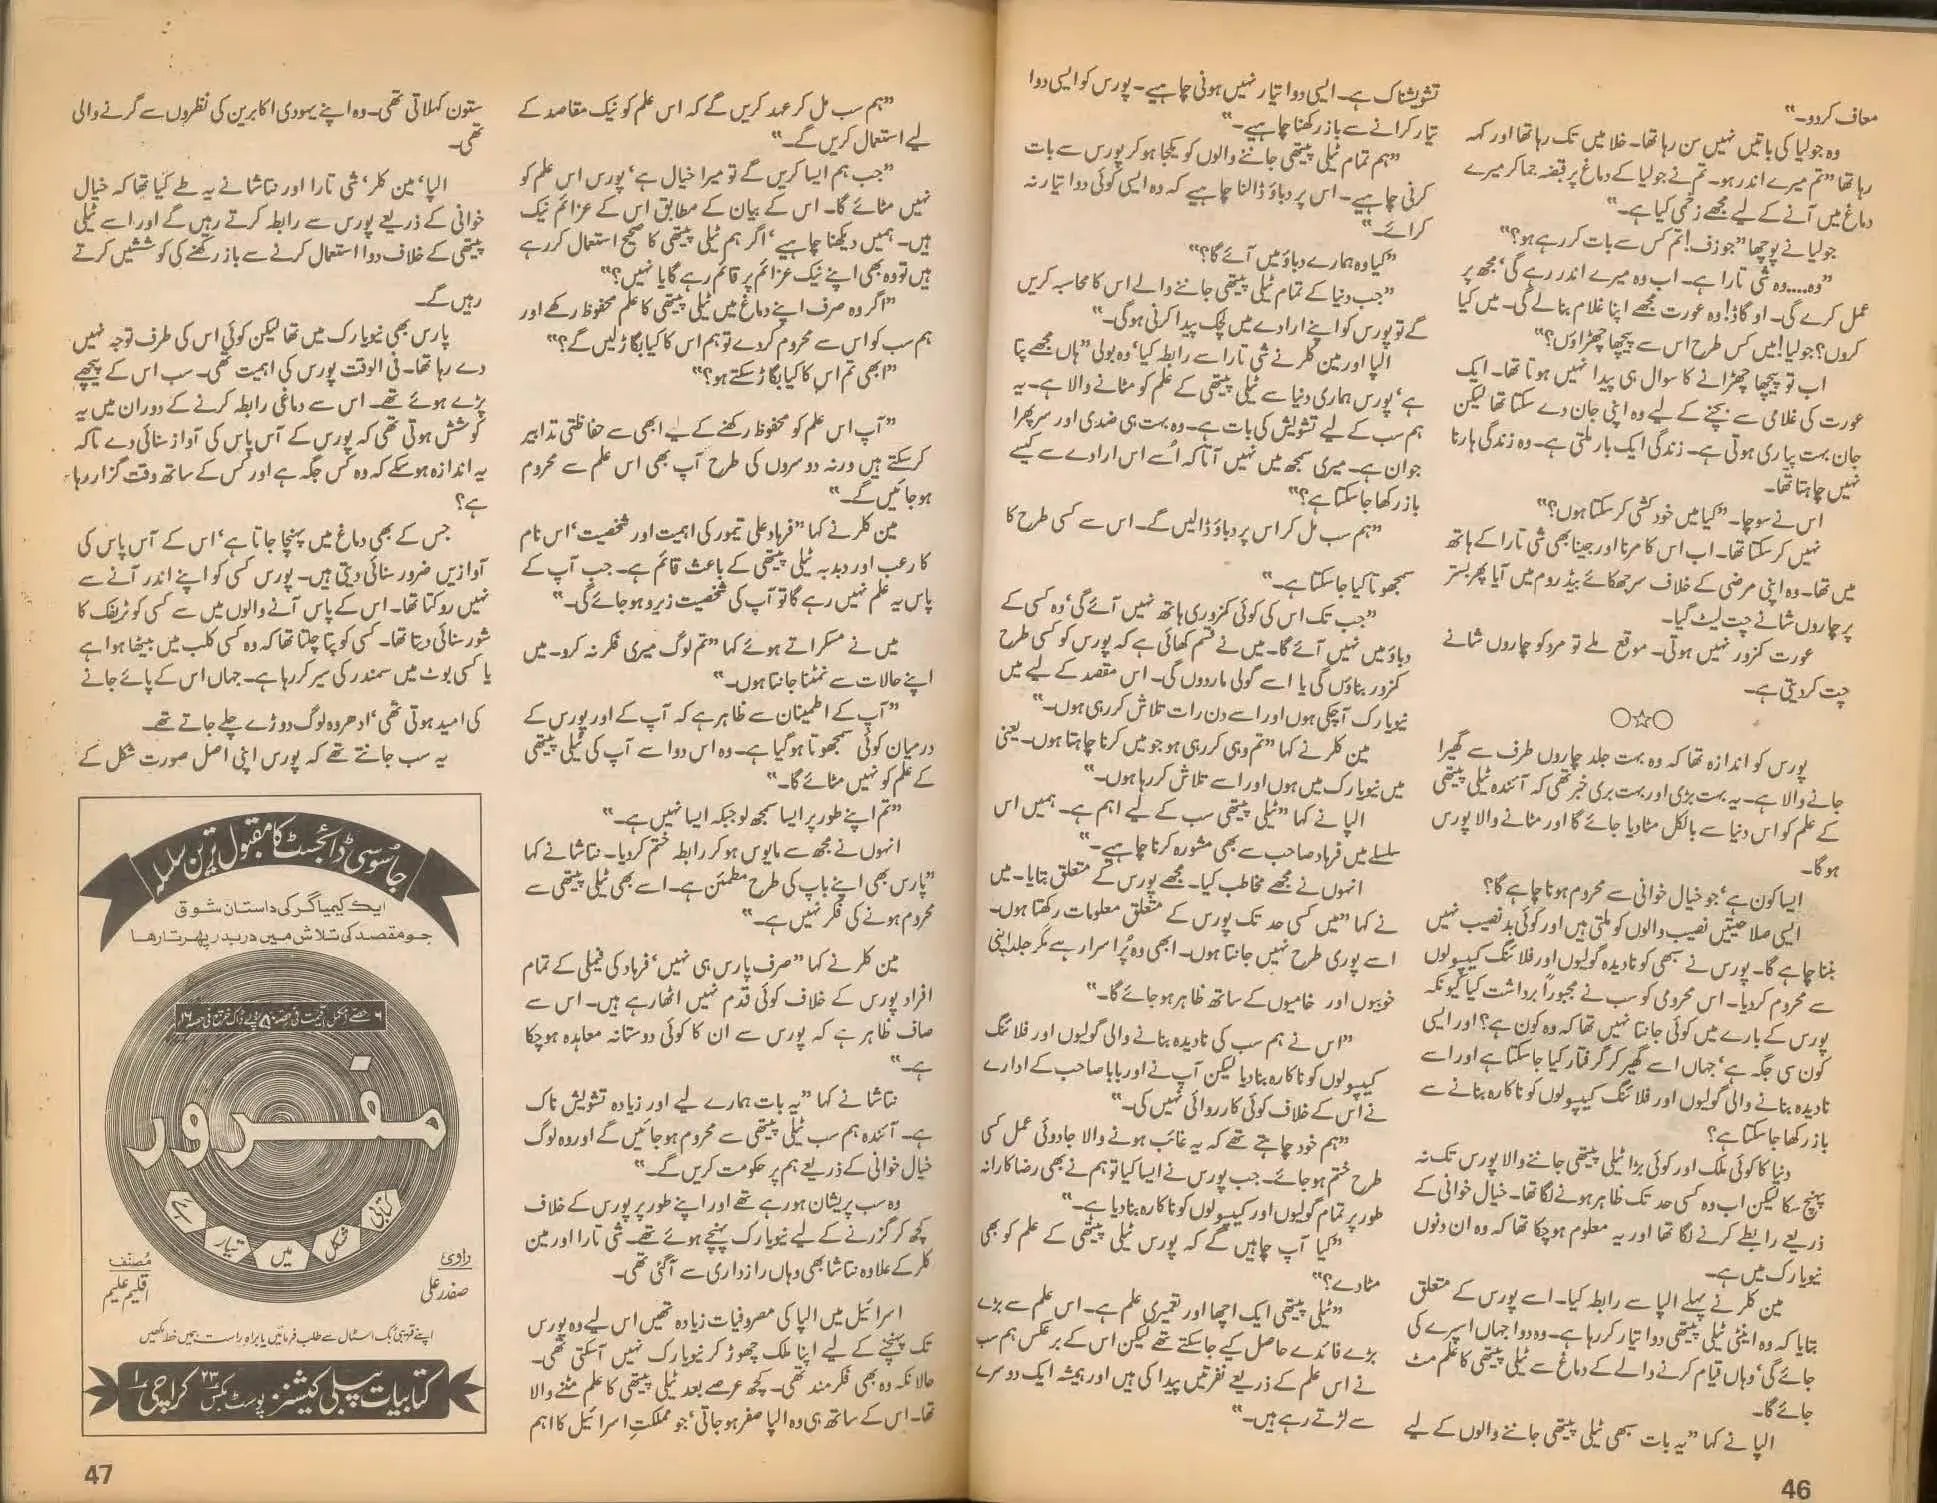 معاف کردو۔"
وہ جولیا کی باتیں نہیں سن رہا تھا۔ خلا میں تک رہا تھا اور کہہ
رہا تھا "تم میرے اندر ہو۔ تم نے جولیا کے دماغ پر قبضہ جما کر میرے
دماغ میں آنے کے لیے مجھے زخمی کیا ہے۔"
جولیا نے پوچھا "جوزف! تم کس سے بات کر رہے ہو؟"
"وہ.... وہ شی تارا ہے۔ اب وہ میرے اندر رہے گی' مجھ پر
عمل کرے گی۔ او گاڈ! وہ عورت مجھے اپنا غلام بنالے گی۔ میں کیا
کروں؟ جولیا! میں کس طرح اس سے پیچھا چھڑاؤں؟"
اب تو پیچھا چھڑانے کا سوال ہی پیدا نہیں ہوتا تھا۔ ایک
عورت کی غلامی سے بچنے کے لیے وہ اپنی جان دے سکتا تھا لیکن
جان بہت پیاری ہوتی ہے۔ زندگی ایک بار ملتی ہے۔ وہ زندگی ہارنا
نہیں چاہتا تھا۔
اس نے سوچا۔ "کیا میں خودکشی کر سکتا ہوں؟"
نہیں کر سکتا تھا۔ اب اس کا مرنا اور جینا بھی شی تارا کے ہاتھ
میں تھا۔ وہ اپنی مرضی کے خلاف سر جھکائے بیڈ روم میں آیا پھر بستر
پر چاروں شانے چت لیٹ گیا۔
عورت کمزور نہیں ہوتی۔ موقع ملے تو مرد کو چاروں شانے
چت کر دیتی ہے۔
○☆○
پورس کو اندازہ تھا کہ وہ بہت جلد چاروں طرف سے گھیرا
جانے والا ہے۔ یہ بہت بڑی اور بہت بری خبر تھی کہ آئندہ ٹیلی پیتھی
کے علم کو اس دنیا سے بالکل مٹا دیا جائے گا اور مٹانے والا پورس
ہوگا۔
ایسا کون ہے' جو خیال خوانی سے محروم ہونا چاہے گا؟
ایسی صلاحیتیں نصیب والوں کو ملتی ہیں اور کوئی بد نصیب نہیں
بننا چاہے گا۔ پورس نے سبھی کو نادیدہ گولیوں اور فلائنگ کیپسولوں
سے محروم کر دیا۔ اس محرومی کو سب نے مجبوراً برداشت کیا کیونکہ
پورس کے بارے میں کوئی جانتا نہیں تھا کہ وہ کون ہے؟ اور ایسی
کون سی جگہ ہے' جہاں اسے گھیر کر گرفتار کیا جاسکتا ہے اور اسے
نادیدہ بنانے والی گولیوں اور فلائنگ کیپسولوں کو ناکارہ بنانے سے
باز رکھا جاسکتا ہے؟
دنیا کا کوئی ملک اور کوئی بڑا ٹیلی پیتھی جاننے والا پورس تک نہ
پہنچ سکا لیکن اب وہ کسی حد تک ظاہر ہونے لگا تھا۔ خیال خوانی کے
ذریعے رابطے کرنے لگا تھا اور یہ معلوم ہو چکا تھا کہ وہ ان دنوں
نیویارک میں ہے۔
مین کلر نے پہلے الپا سے رابطہ کیا۔ اسے پورس کے متعلق
بتایا کہ وہ اینٹی ٹیلی پیتھی دوا تیار کر رہا ہے۔ وہ دوا جہاں اسپرے کی
جائے گی' وہاں قیام کرنے والے کے دماغ سے ٹیلی پیتھی کا علم مٹ
جائے گا۔
الپا نے کہا "یہ بات سبھی ٹیلی پیتھی جاننے والوں کے لیے
تشویشناک ہے۔ ایسی دوا تیار نہیں ہونی چاہیے۔ پورس کو ایسی دوا
تیار کرانے سے باز رکھنا چاہیے۔"
"ہم تمام ٹیلی پیتھی جاننے والوں کو یکجا ہو کر پورس سے بات
کرنی چاہیے۔ اس پر دباؤ ڈالنا چاہیے کہ وہ ایسی کوئی دوا تیار نہ
کرائے۔"
"کیا وہ ہمارے دباؤ میں آئے گا؟"
"جب دنیا کے تمام ٹیلی پیتھی جاننے والے اس کا محاسبہ کریں
گے تو پورس کو اپنے ارادے میں لچک پیدا کرنی ہوگی۔"
الپا اور مین کلر نے شی تارا سے رابطہ کیا' وہ بولی "ہاں مجھے پتا
ہے' پورس ہماری دنیا سے ٹیلی پیتھی کے علم کو مٹانے والا ہے۔ یہ
ہم سب کے لیے تشویش کی بات ہے۔ وہ بہت ہی ضدی اور سر پھرا
جوان ہے۔ میری سمجھ میں نہیں آتا کہ اُسے اس ارادے سے کیسے
باز رکھا جاسکتا ہے؟"
"ہم سب مل کر اس پر دباؤ ڈالیں گے۔ اس سے کسی طرح کا
سمجھوتا کیا جاسکتا ہے۔"
"جب تک اس کی کوئی کمزوری ہاتھ نہیں آئے گی' وہ کسی کے
دباؤ میں نہیں آئے گا۔ میں نے قسم کھائی ہے کہ پورس کو کسی طرح
کمزور بناؤں گی یا اسے گولی مار دوں گی۔ اس مقصد کے لیے میں
نیویارک آچکی ہوں اور اسے دن رات تلاش کر رہی ہوں۔"
مین کلر نے کہا "تم وہی کر رہی ہو جو میں کرنا چاہتا ہوں۔ یعنی
میں نیویارک میں ہوں اور اسے تلاش کر رہا ہوں۔"
الپا نے کہا "ٹیلی پیتھی سب کے لیے اہم ہے۔ ہمیں اس
سلسلے میں فرہاد صاحب سے بھی مشورہ کرنا چاہیے۔"
انہوں نے مجھے مخاطب کیا۔ مجھے پورس کے متعلق بتایا۔ میں
نے کہا "میں کسی حد تک پورس کے متعلق معلومات رکھتا ہوں۔
اسے پوری طرح نہیں جانتا ہوں۔ ابھی وہ پُراسرار ہے مگر جلد اپنی
خوبیوں اور خامیوں کے ساتھ ظاہر ہو جائے گا۔"
"اس نے ہم سب کی نادیدہ بنانے والی گولیوں اور فلائنگ
کیپسولوں کو ناکارہ بنا دیا لیکن آپ نے اور بابا صاحب کے ادارے
نے اس کے خلاف کوئی کارروائی نہیں کی۔"
"ہم خود چاہتے تھے کہ یہ غائب ہونے والا جادوئی عمل کسی
طرح ختم ہو جائے۔ جب پورس نے ایسا کیا تو ہم نے بھی رضا کارانہ
طور پر تمام گولیوں اور کیپسولوں کو ناکارہ بنا دیا ہے۔"
"کیا آپ چاہیں گے کہ پورس ٹیلی پیتھی کے علم کو بھی
مٹا دے؟"
"ٹیلی پیتھی ایک اچھا اور تعمیری علم ہے۔ اس علم سے بڑے
بڑے فائدے حاصل کیے جاسکتے تھے لیکن اس کے بر عکس ہم سب
نے اس علم کے ذریعے نفرتیں پیدا کی ہیں اور ہمیشہ ایک دوسرے
سے لڑتے رہے ہیں۔"
46
"ہم سب مل کر عہد کریں گے کہ اس علم کو نیک مقاصد کے
لیے استعمال کریں گے۔"
"جب ہم ایسا کریں گے تو میرا خیال ہے' پورس اس علم کو
نہیں مٹائے گا۔ اس کے بیان کے مطابق اس کے عزائم نیک
ہیں۔ ہمیں دیکھنا چاہیے' اگر ہم ٹیلی پیتھی کا صحیح استعمال کر رہے
ہیں تو وہ بھی اپنے نیک عزائم پر قائم رہے گا یا نہیں؟"
"اگر وہ صرف اپنے دماغ میں ٹیلی پیتھی کا علم محفوظ رکھے اور
ہم سب کو اس سے محروم کر دے تو ہم اس کا کیا بگاڑ لیں گے؟"
"ابھی تم اس کا کیا بگاڑ سکتے ہو؟"
"آپ اس علم کو محفوظ رکھنے کے لیے ابھی سے حفاظتی تدابیر
کر سکتے ہیں ورنہ دوسروں کی طرح آپ بھی اس علم سے محروم
ہو جائیں گے۔"
مین کلر نے کہا "فرہاد علی تیمور کی اہمیت اور شخصیت' اس نام
کا رعب اور دبدبہ ٹیلی پیتھی کے باعث قائم ہے۔ جب آپ کے
پاس یہ علم نہیں رہے گا تو آپ کی شخصیت زیرو ہو جائے گی۔"
میں نے مسکراتے ہوئے کہا "تم لوگ میری فکر نہ کرو۔ میں
اپنے حالات سے نمٹنا جانتا ہوں۔"
"آپ کے اطمینان سے ظاہر ہے کہ آپ کے اور پورس کے
درمیان کوئی سمجھوتا ہوگیا ہے۔ وہ اس دوا سے آپ کی ٹیلی پیتھی
کے علم کو نہیں مٹائے گا۔"
"تم اپنے طور پر ایسا سمجھ لو جبکہ ایسا نہیں ہے۔"
انہوں نے مجھ سے مایوس ہو کر رابطہ ختم کر دیا۔ نتاشا نے کہا
"پارس بھی اپنے باپ کی طرح مطمئن ہے۔ اسے بھی ٹیلی پیتھی سے
محروم ہونے کی فکر نہیں ہے۔"
مین کلر نے کہا "صرف پارس ہی نہیں' فرہاد کی فیملی کے تمام
افراد پورس کے خلاف کوئی قدم نہیں اٹھا رہے ہیں۔ اس سے
صاف ظاہر ہے کہ پورس سے ان کا کوئی دوستانہ معاہدہ ہو چکا
ہے۔"
نتاشا نے کہا "یہ بات ہمارے لیے اور زیادہ تشویش ناک
ہے۔ آئندہ ہم سب ٹیلی پیتھی سے محروم ہو جائیں گے اور وہ لوگ
خیال خوانی کے ذریعے ہم پر حکومت کریں گے۔"
وہ سب پریشان ہو رہے تھے اور اپنے طور پر پورس کے خلاف
کچھ کر گزرنے کے لیے نیویارک پہنچے ہوئے تھے۔ شی تارا اور مین
کلر کے علاوہ نتاشا بھی وہاں رازداری سے آگئی تھی۔
اسرائیل میں الپا کی مصروفیات زیادہ تھیں اس لیے وہ پورس
تک پہنچنے کے لیے اپنا ملک چھوڑ کر نیویارک نہیں آسکتی تھی۔
حالانکہ وہ بھی فکر مند تھی۔ کچھ عرصے بعد ٹیلی پیتھی کا علم مٹنے والا
تھا۔ اس کے ساتھ ہی وہ الپا صفر ہو جاتی' جو مملکتِ اسرائیل کا اہم
ستون کہلاتی تھی۔ وہ اپنے یہودی اکابرین کی نظروں سے گرنے والی
تھی۔
الپا' مین کلر' شی تارا اور نتاشا نے یہ طے کیا تھا کہ خیال
خوانی کے ذریعے پورس سے رابطہ کرتے رہیں گے اور اسے ٹیلی
پیتھی کے خلاف دوا استعمال کرنے سے باز رکھنے کی کوششیں کرتے
رہیں گے۔
پارس بھی نیویارک میں تھا لیکن کوئی اس کی طرف توجہ نہیں
دے رہا تھا۔ فی الوقت پورس کی اہمیت تھی۔ سب اس کے پیچھے
پڑے ہوئے تھے۔ اس سے دماغی رابطہ کرنے کے دوران میں یہ
کوشش ہوتی تھی کہ پورس کے آس پاس کی آواز سنائی دے تاکہ
یہ اندازہ ہو سکے کہ وہ کس جگہ ہے اور کس کے ساتھ وقت گزار رہا
ہے؟
جس کے بھی دماغ میں پہنچا جاتا ہے' اس کے آس پاس کی
آوازیں ضرور سنائی دیتی ہیں۔ پورس کسی کو اپنے اندر آنے سے
نہیں روکتا تھا۔ اس کے پاس آنے والوں میں سے کسی کو ٹریفک کا
شور سنائی دیتا تھا۔ کسی کو پتا چلتا تھا کہ وہ کسی کلب میں بیٹھا ہوا ہے
یا کسی بوٹ میں سمندر کی سیر کر رہا ہے۔ جہاں اس کے پائے جانے
کی امید ہوتی تھی' ادھر وہ لوگ دوڑے چلے جاتے تھے۔
یہ سب جانتے تھے کہ پورس اپنی اصل صورت شکل کے
جاسُوسی ڈائجسٹ کا مقبول ترین سلسلہ
ایک کیمیاگر کی داستان شوق
جو مقصد کی تلاش میں دربدر پھرتا رہا
مفرور
کتابی
شکل
میں
تیار
ہے
راوی
صفدر علی
مُصنّف
اقلیم علیم
اپنے قریبی بک اسٹال سے طلب فرمائیں یا براہِ راست ہمیں خط لکھیں
کتابیات پبلی کیشنز پوسٹ بکس ۲۳ کراچی ۱
47